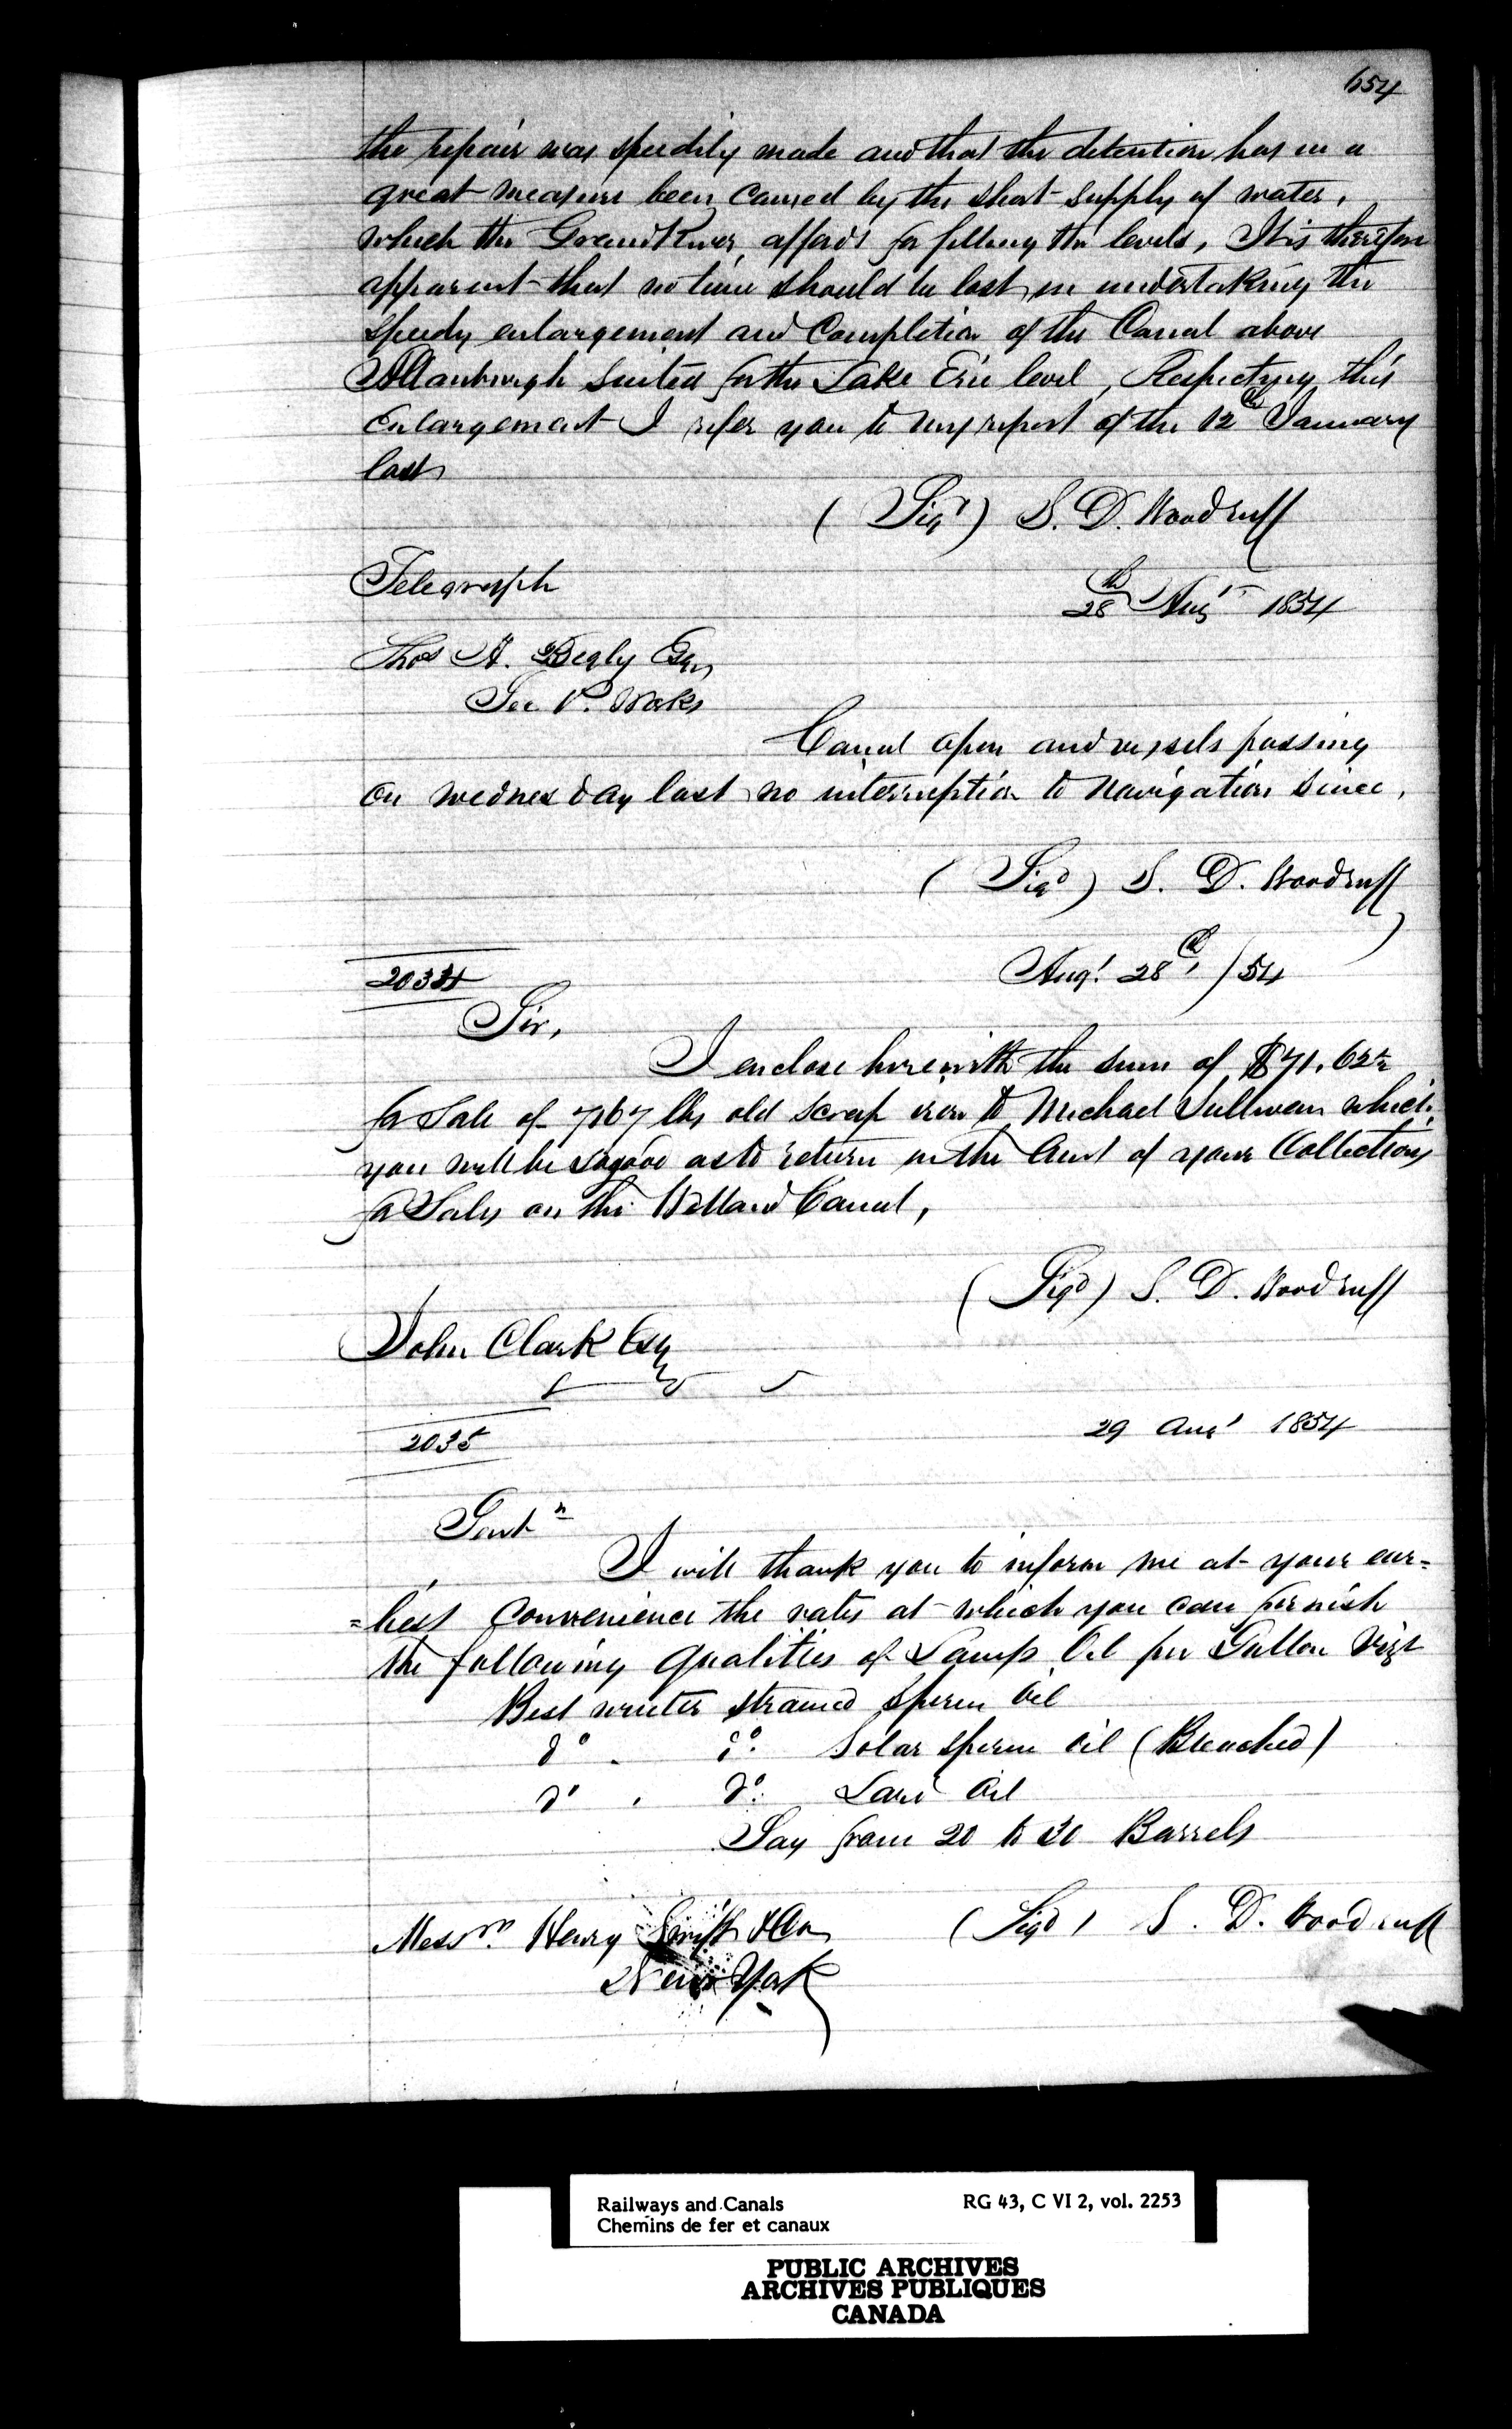 654
the repair was speedily made and that the detention has in a
great measure been caused by the short supply of water,
which the Grand River, affords for filling the levels, It is therefore
apparent that no time should be lost in undertaking the
speedy enlargement and Completion of the Canal above
Allanburgh suited for the Lake Erie level, Respecting this
Enlargement I refer you to my report of the 12th January
last
(Sigd) S. D. Woodruff
Telegraph
28th Augt 1854
Thos A. Begly Esq
Sec P. Works
Canal open and vessels passing
on wednesday last no interruption to Navigation since,
(Sigd) S. D. Woodruff
2034
Augt 28th /54
Sir,
I enclose herewith the sum of $71.62½
for Sale of 7167 lbs old scrap iron to Michael Sullivan which
you will be so good as to return in the Acct of your Collections
for Sales on the Welland Canal,
(Sigd) S. D. Woodruff
John Clark Esq
2035
29 Augt 1854
Gentn
I will thank you to inform me at your ear=
=liest Convenience the rates at which you can furnish
the following qualities of Lamp Oil per Gallon Vizt
Best winter strained Sperm Oil
do do Solar Sperm Oil (Bleached)
do do Lard Oil
Say from 20 to 30 Barrels
(Sigd) S. D. Woodruff
Messrs Henry Swift & Co
New York
Railways and Canals
Chemins de fer et canaux
RG 43, C VI 2, vol. 2253
PUBLIC ARCHIVES
ARCHIVES PUBLIQUES
CANADA